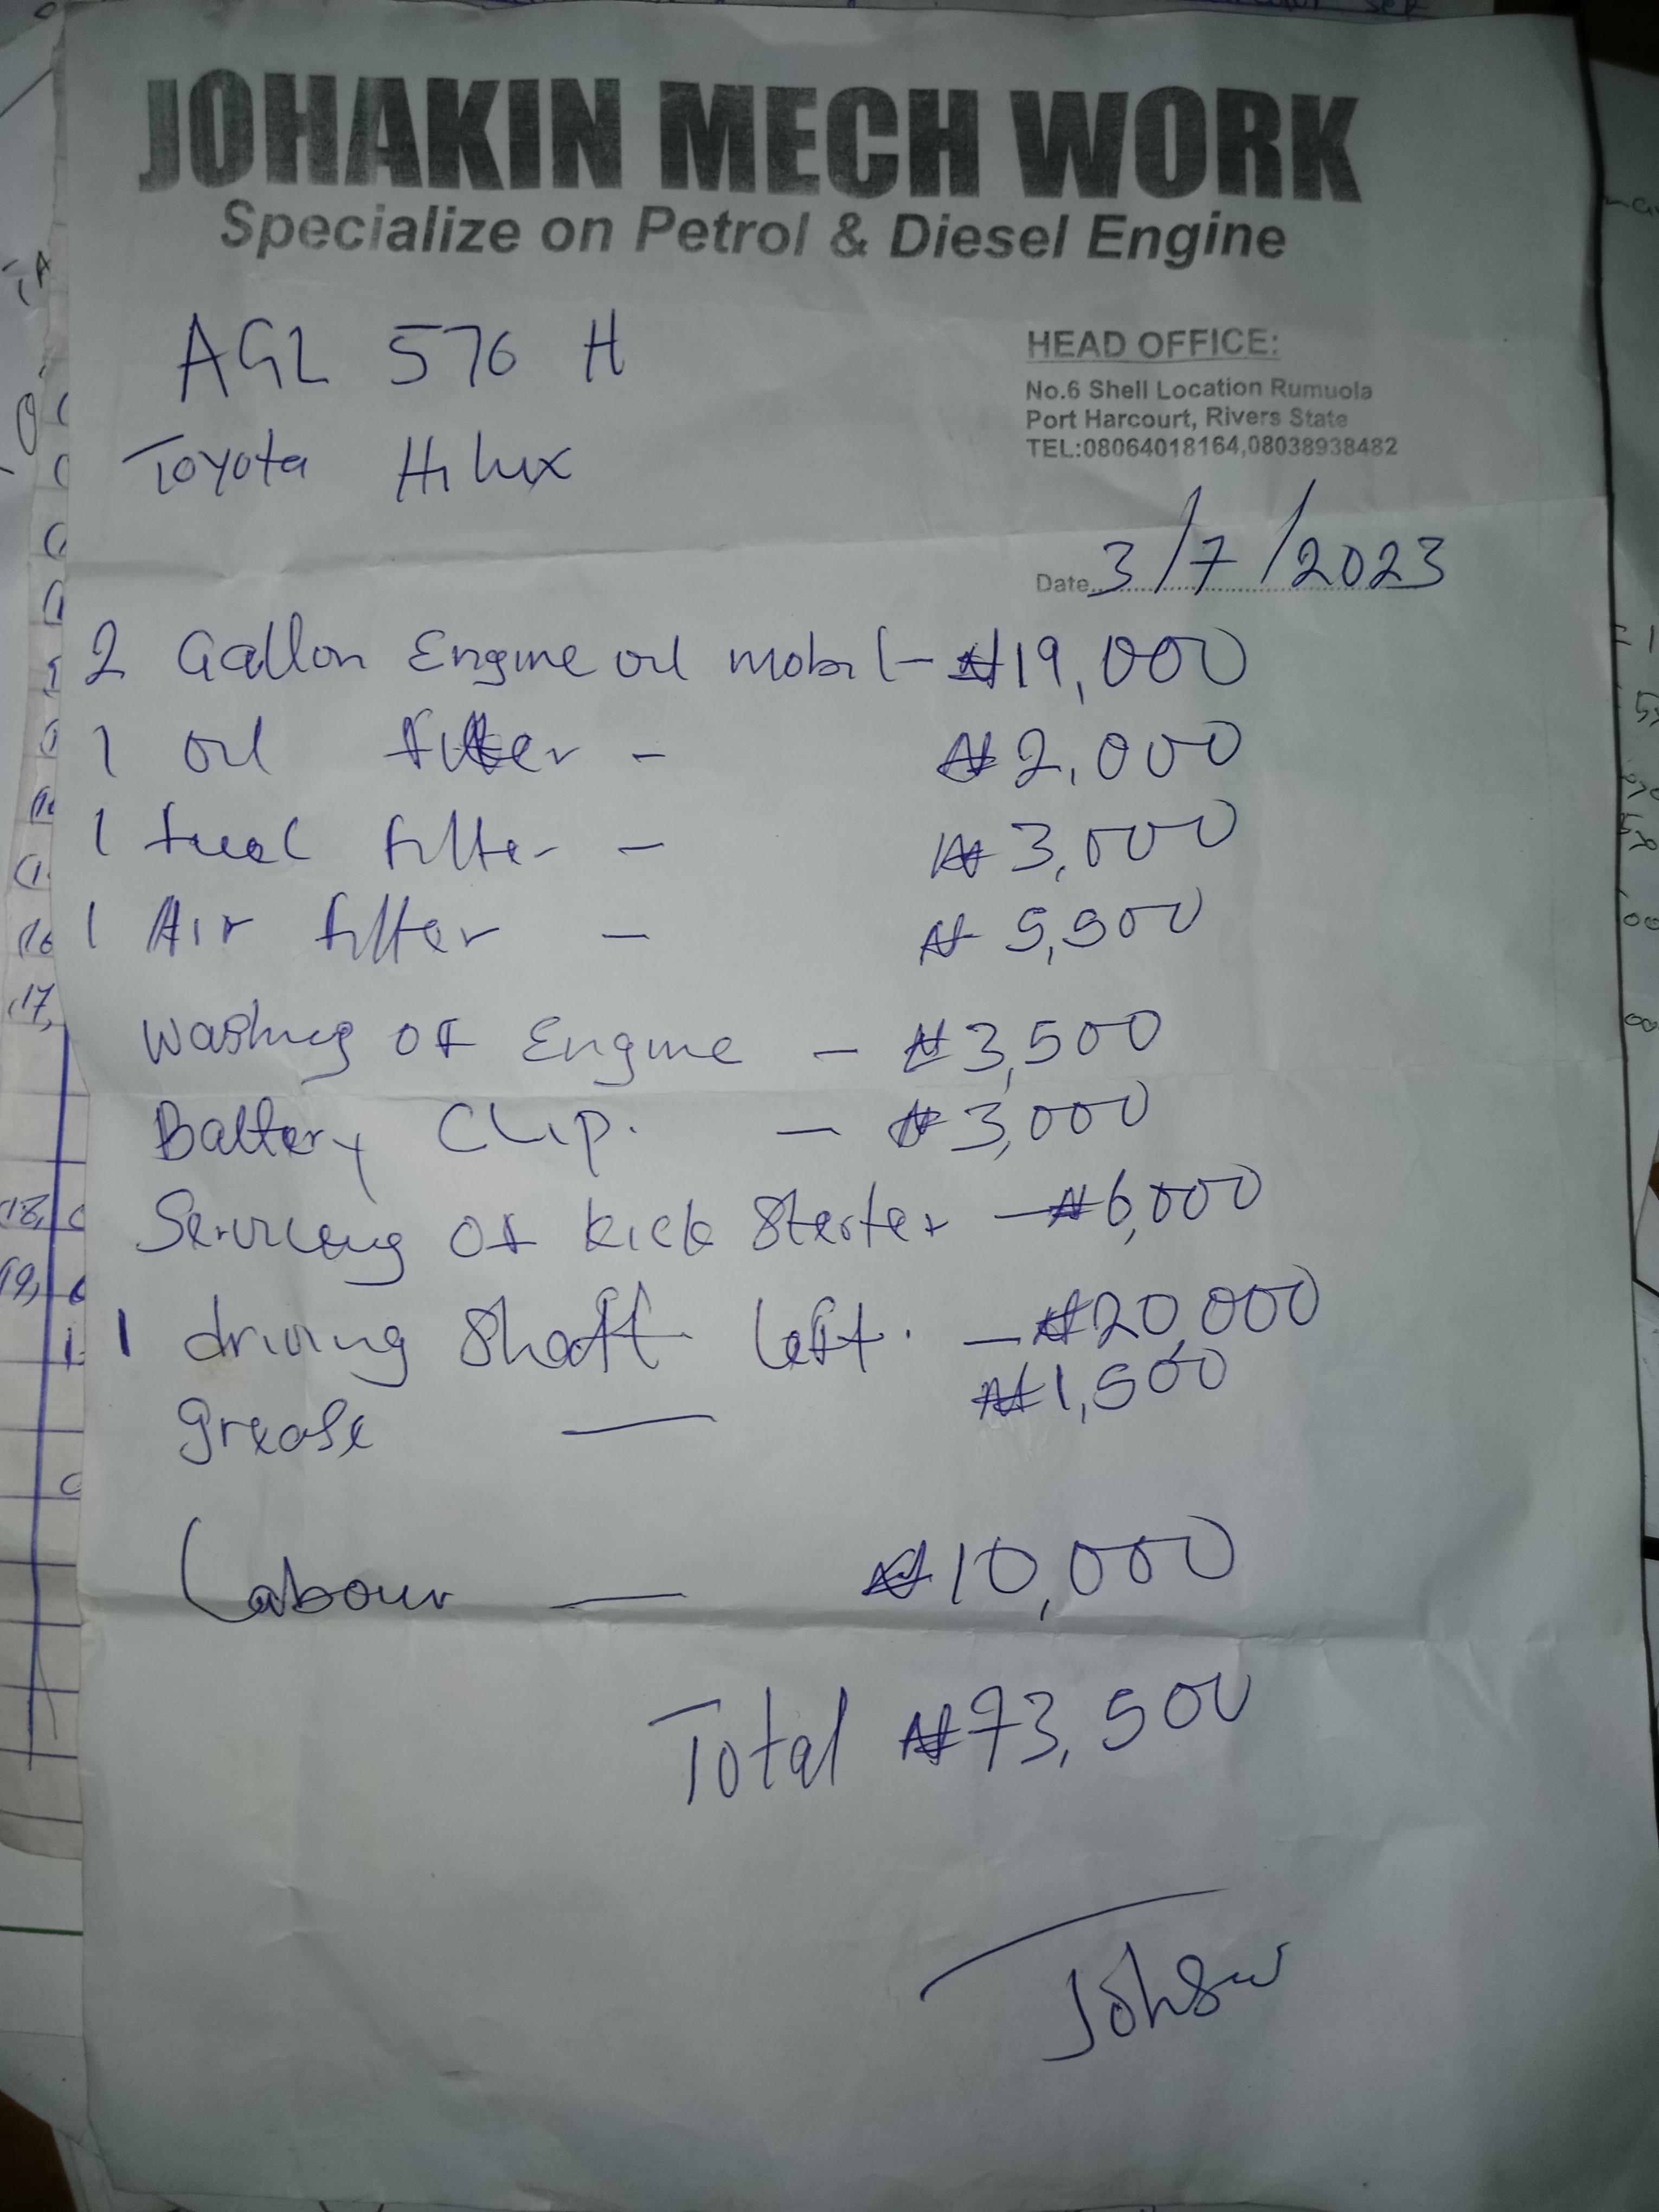 JOHAKIN MECH WORK
Specialize on Petrol & Diesel Engine
AGL 576 H
Toyota Hilux
HEAD OFFICE:
No.6 Shell Location Rumuola
Port Harcourt, Rivers State
TEL:08064018164,08038938482
Date 3/7/2023
2 Gallon Engine oil mobil - ₦19,000
1 oil filter - ₦2,000
1 fuel filter - ₦3,000
1 Air filter - ₦5,500
Washing of Engine - ₦3,500
Battery Clip. - ₦3,000
Servicing of kick Starter - ₦6,000
1 driving Shaft left. - ₦20,000
grease — ₦1,500
Labour — ₦10,000
Total ₦73,500